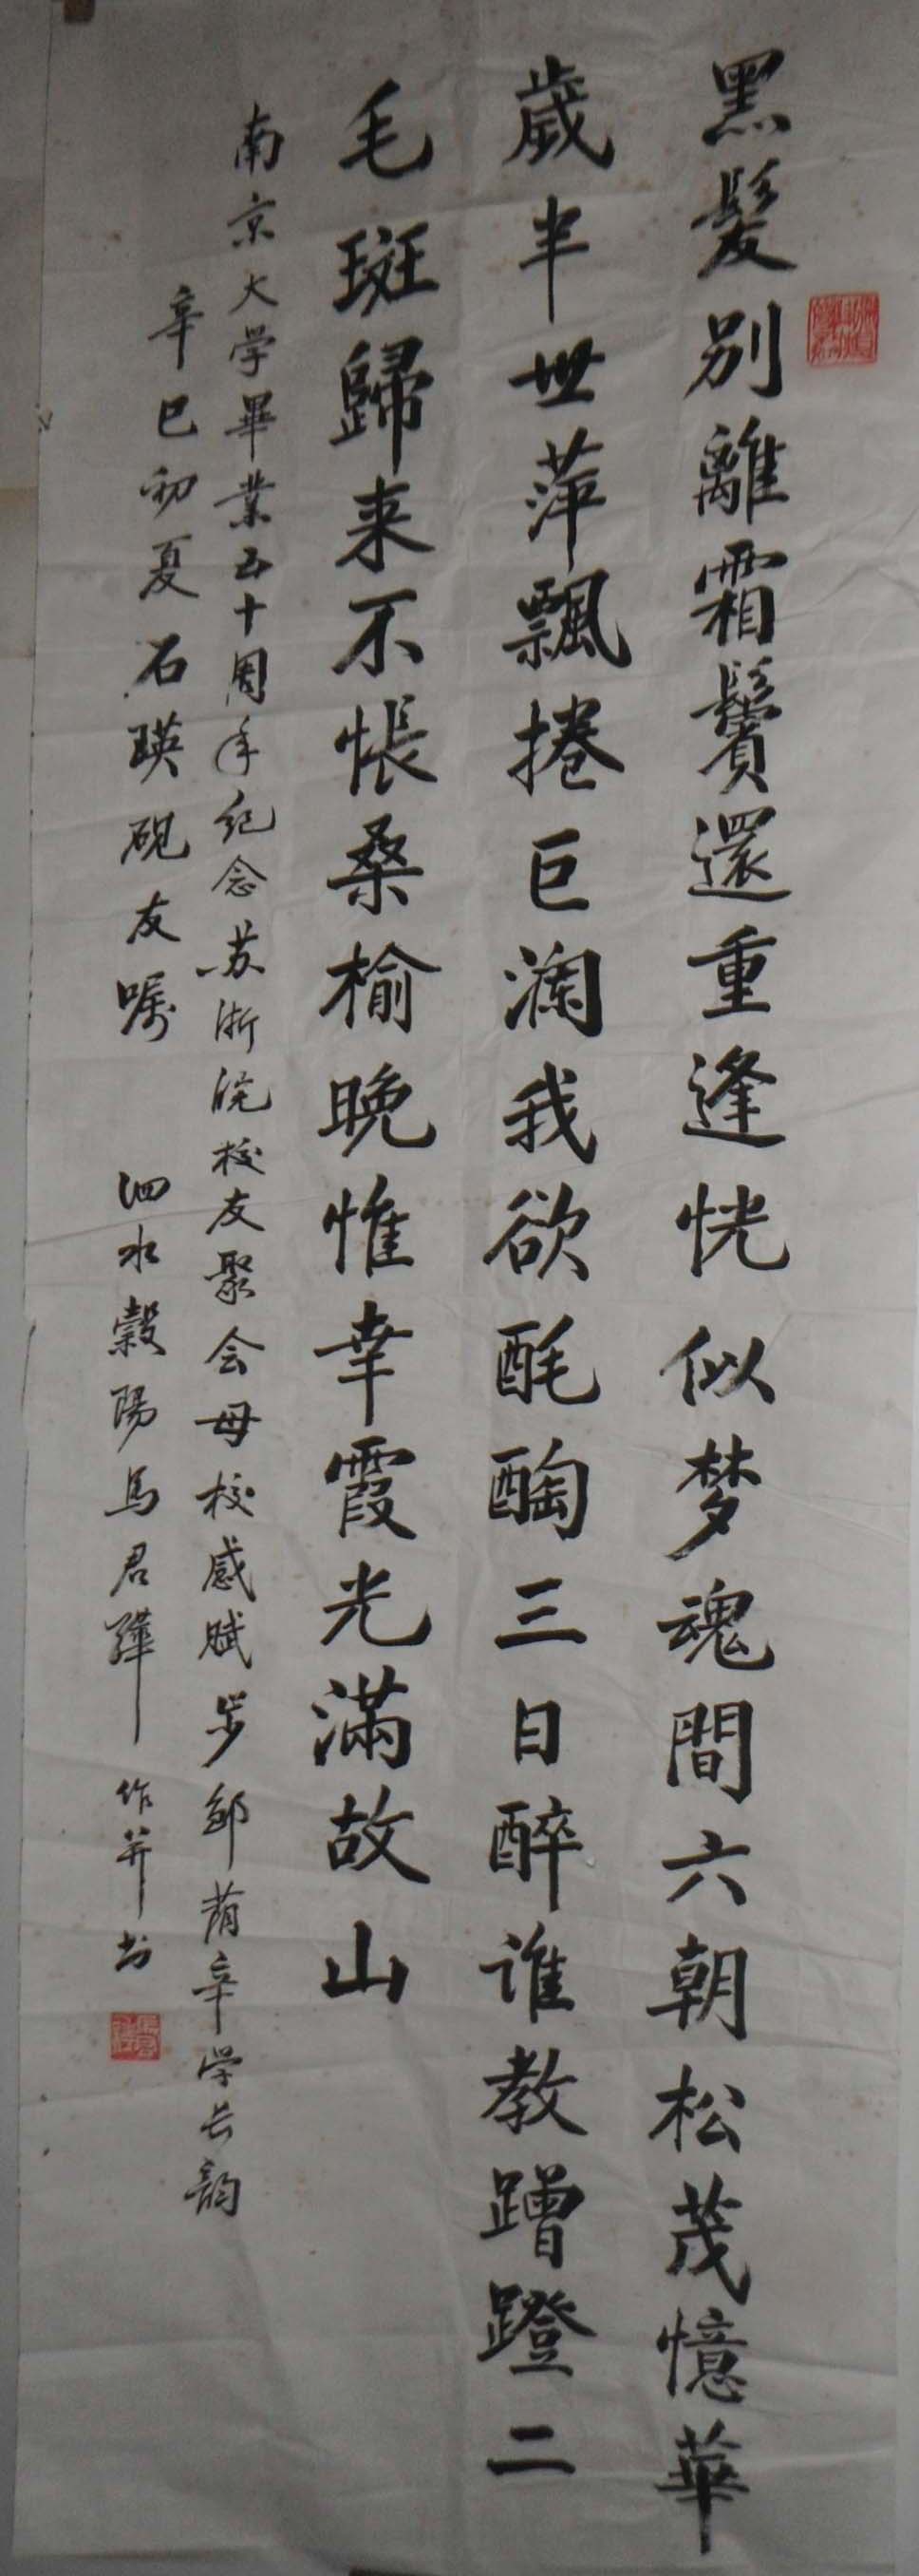 黑髮別離霜鬢還重逢恍似梦魂間六朝松茂憶華
歲半世萍飄捲巨瀾我欲酕醄三日醉谁教蹭蹬二
毛斑歸来不悵桑榆晚惟幸霞光滿故山
南京大学畢業五十周年纪念苏浙浣校友聚会母校感赋步邹荫辛学长韵
辛巳初夏石瑛砚友嘱 泗水穀陽馬君驊作并书